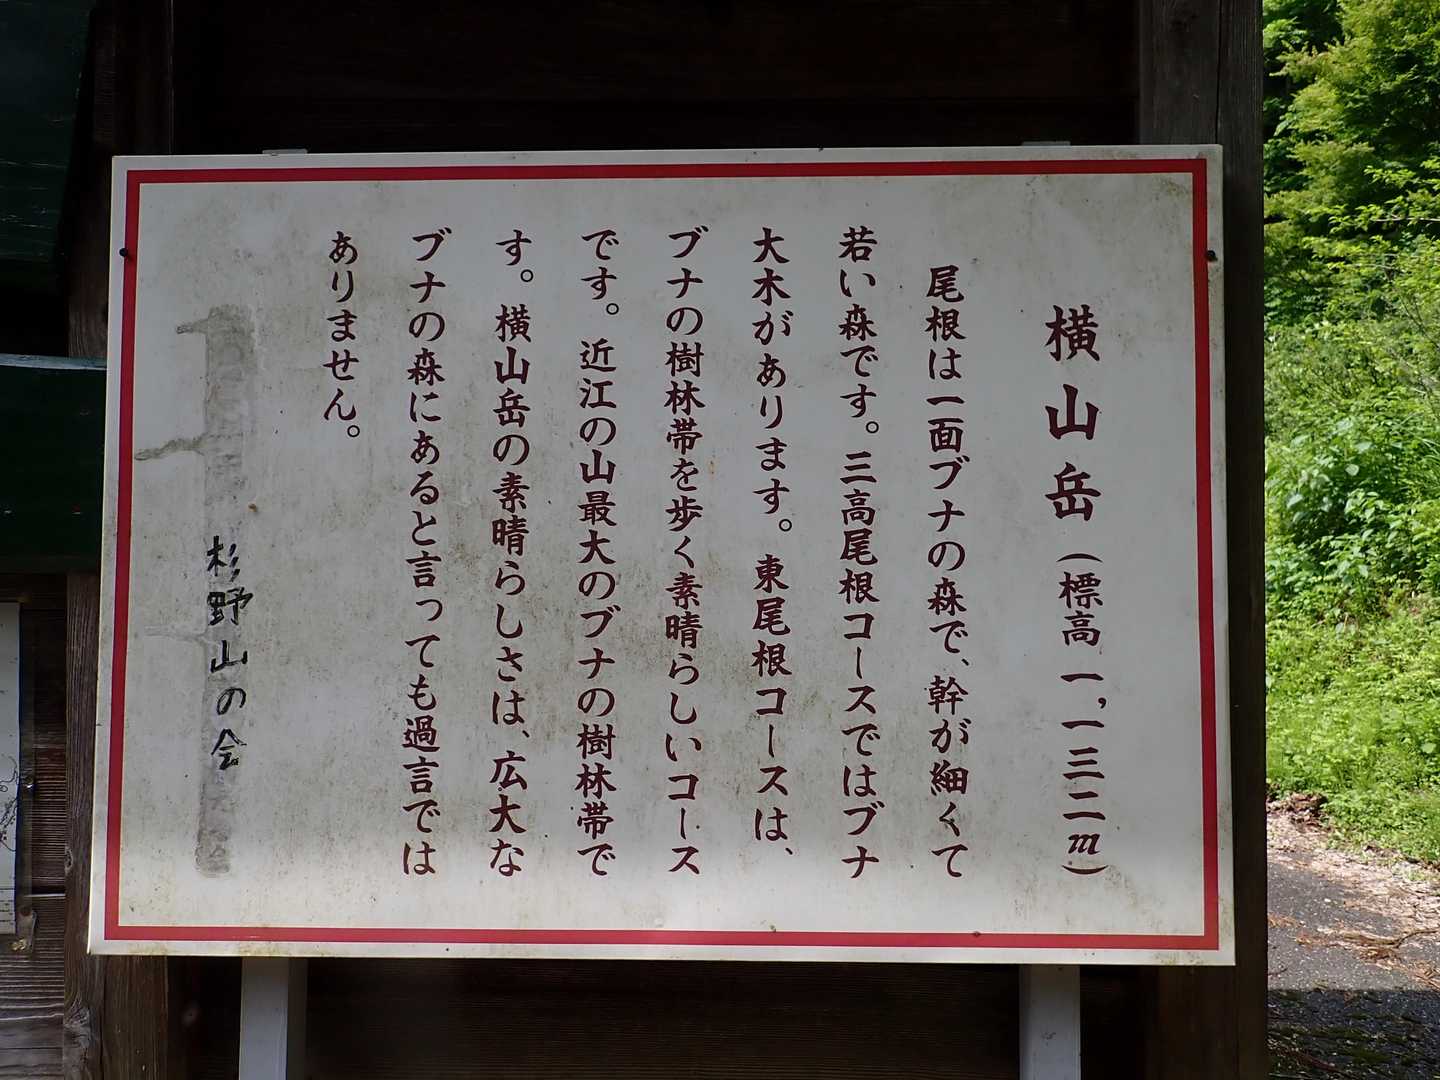 横山岳（標高 一,一三二m）
尾根は一面ブナの森で、幹が細くて
若い森です。三高尾根コースではブナ
大木があります。東尾根コースは、
ブナの樹林帯を歩く素晴らしいコース
です。近江の山最大のブナの樹林帯で
す。横山岳の素晴らしさは、広大な
ブナの森にあると言っても過言では
ありません。
杉野山の会